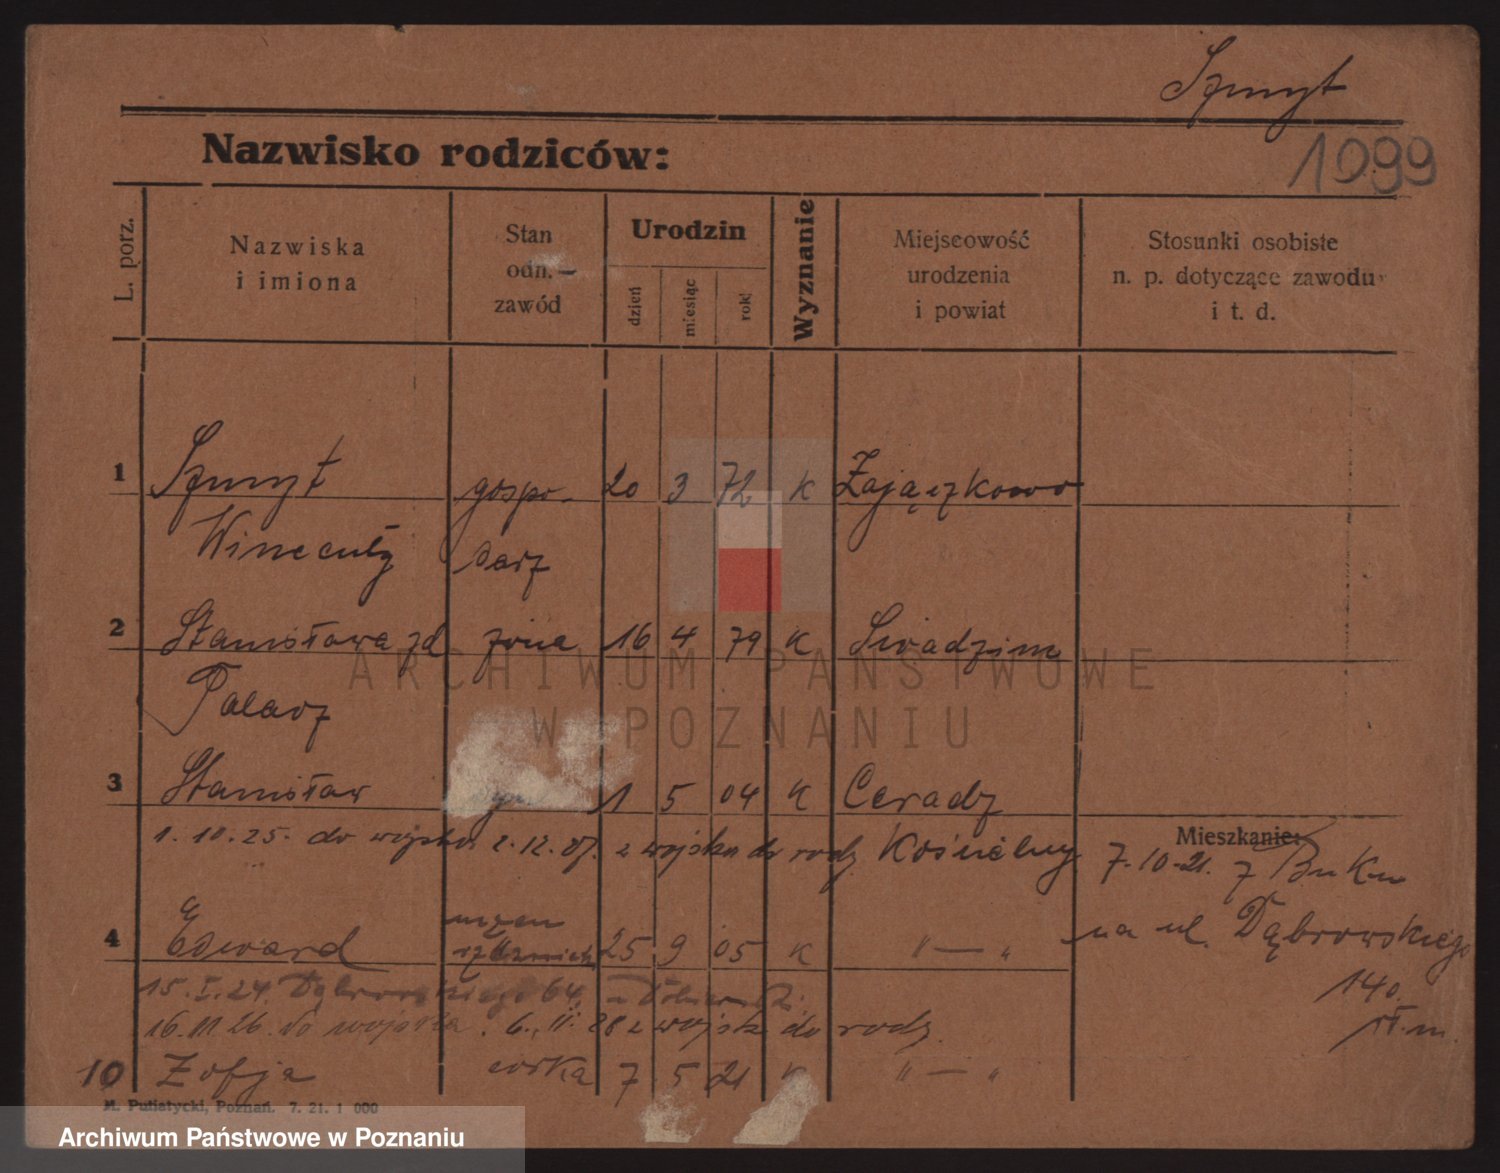 Szmyt
1099
Nazwisko rodziców:
L. porz.
Nazwiska
i imiona
Stan
odn. —
zawód
Urodzin
dzień
miesiąc
rok
Wyznanie
Miejscowość
urodzenia
i powiat
Stosunki osobiste
n. p. dotyczące zawodu
i t. d.
1 Szmyt gospo- 20 3 72 K Zajączkowo
Wincenty darz
2 Stanisława zd żona 16 4 79 K Swadzim
Palacz
3 Stanisław 1 5 04 K Ceradz
1. 10. 25. do wojska 2. 12. 27. z wojska do rodz Kościelny
Mieszkanie:
7-10-21. z Buku
na ul. Dąbrowskiego
140.
4 Edward uczeń 25 9 05 K " — "
15. I. 24. Dąbrowskiego 64
16. 11 26. do wojska. 6. 11. 28 z wojsk do rodz.
10 Zofja córka 7 5 21 K " — "
M. Putiatycki, Poznań. 7. 21. 1 000
ARCHIWUM PAŃSTWOWE
W POZNANIU
Archiwum Państwowe w Poznaniu